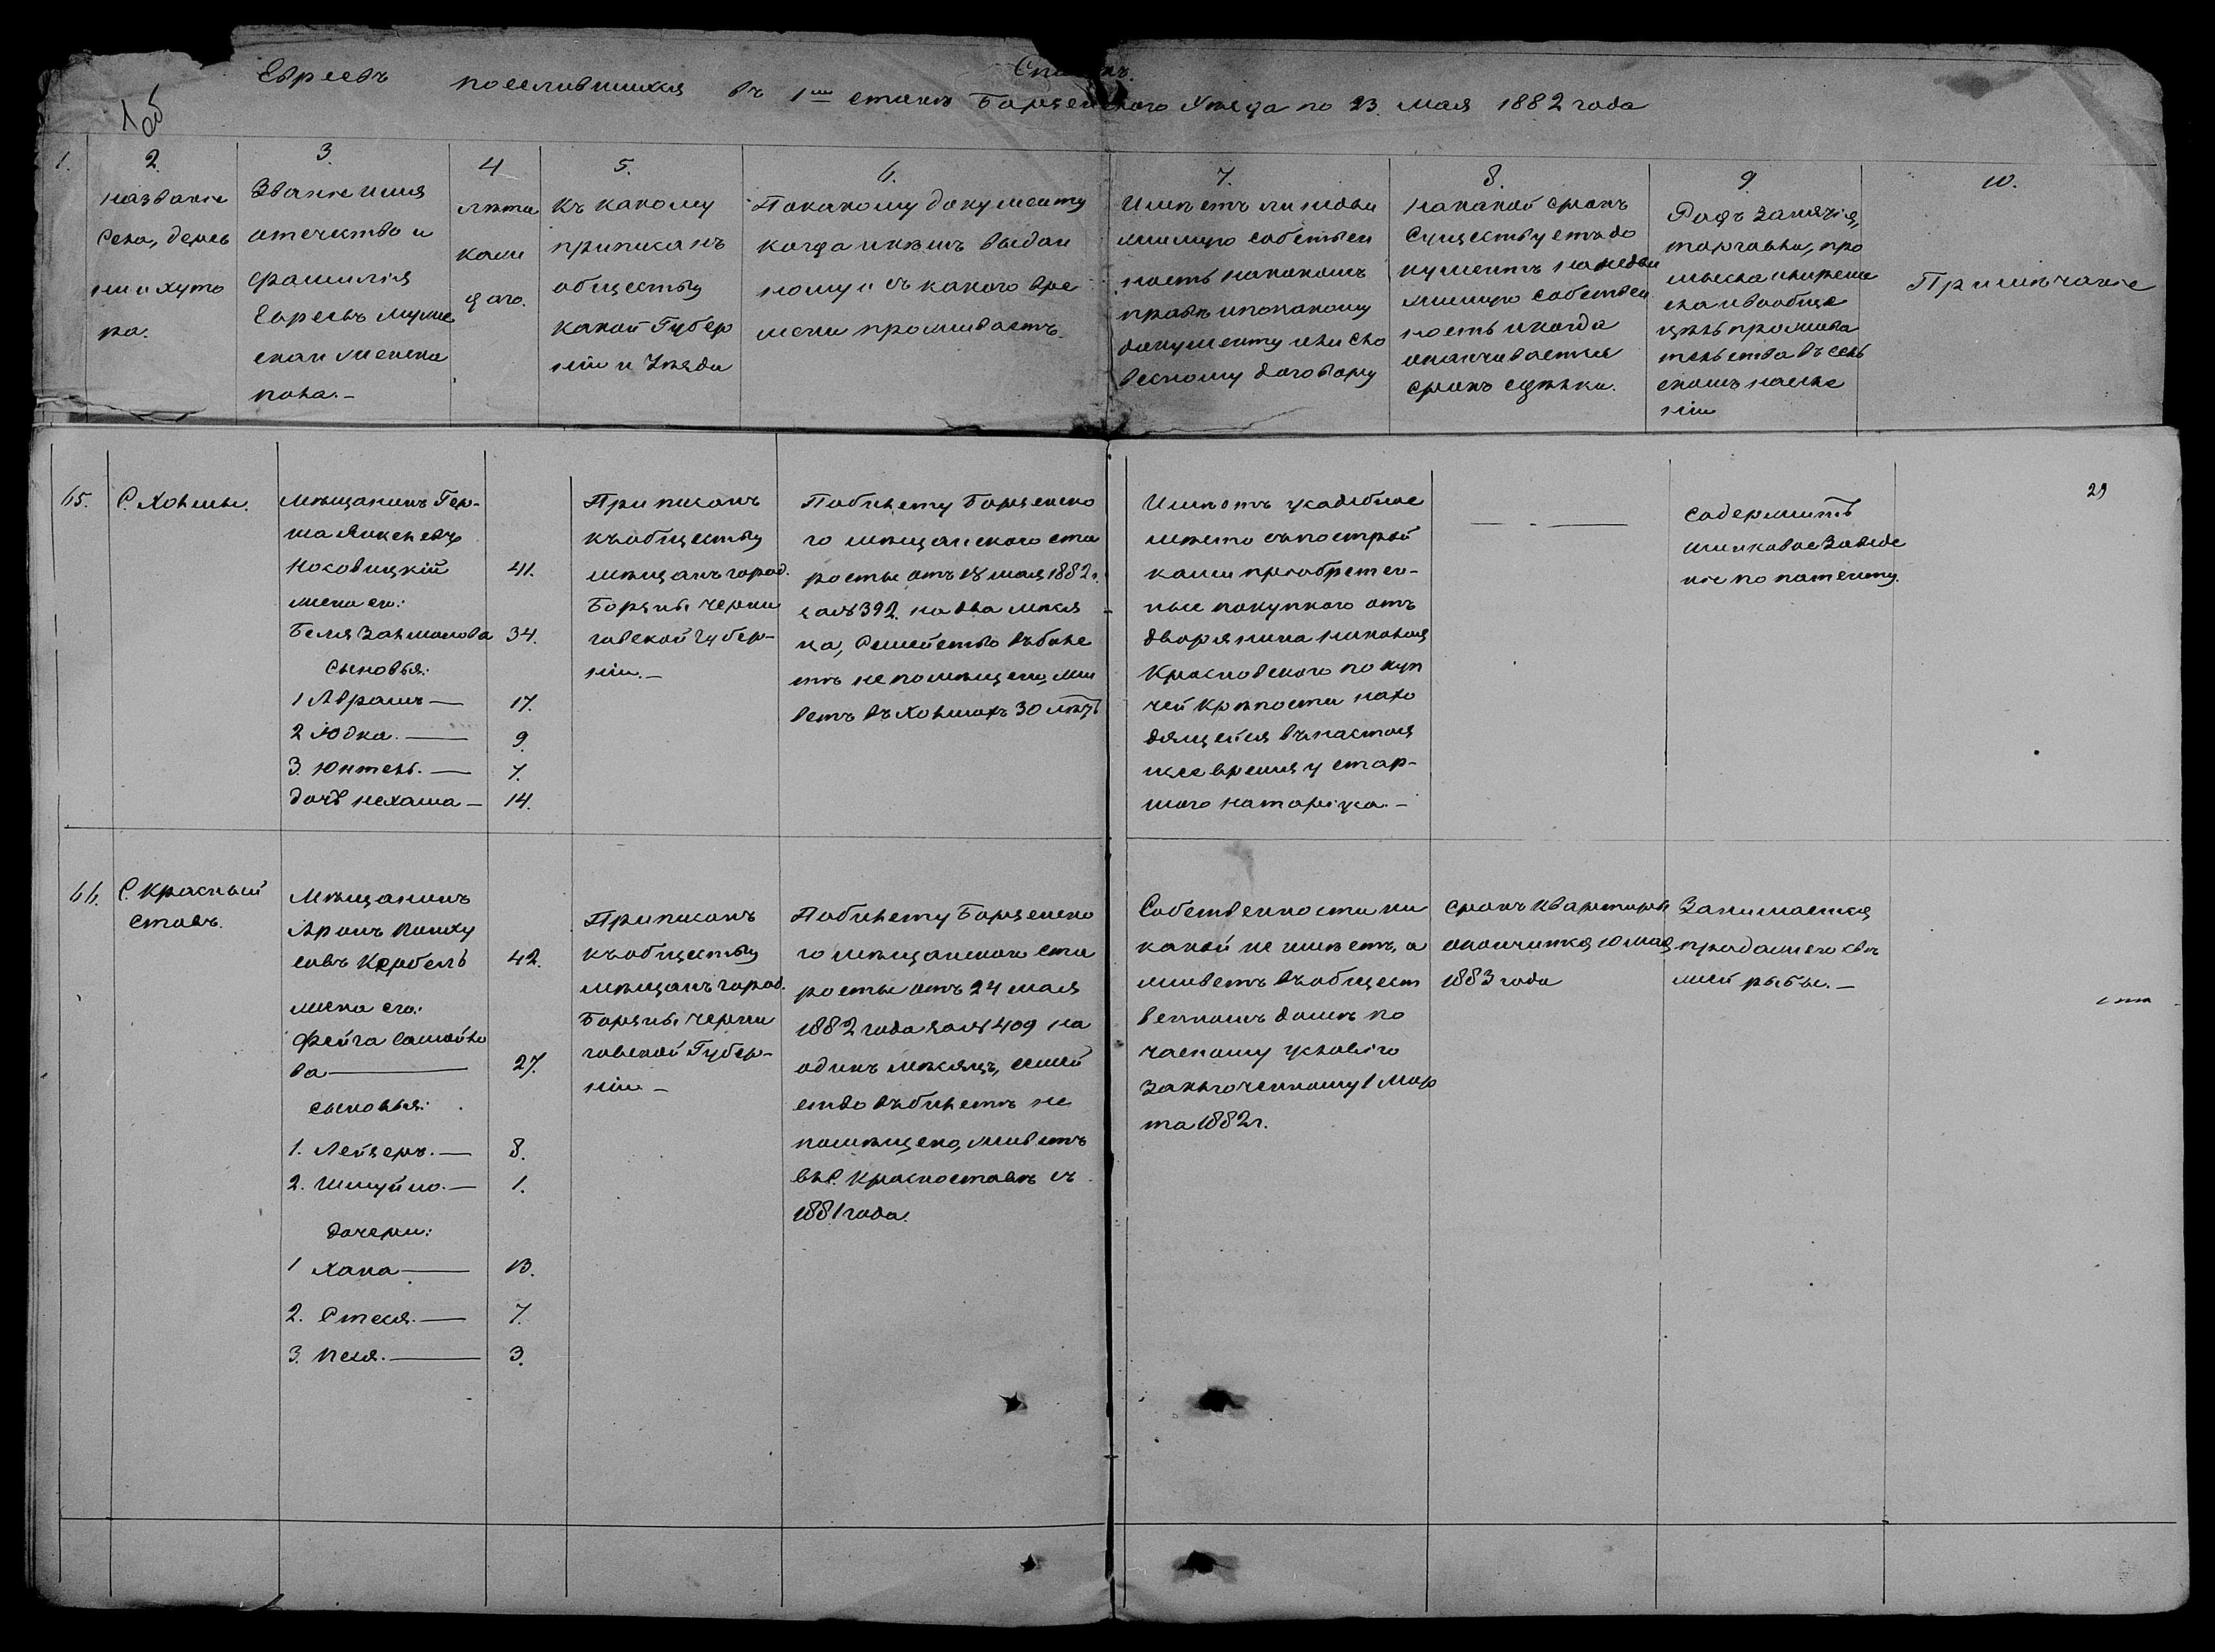 Списокъ
Евреевъ поселившихся въ 1мъ станѣ Борзенского Уѣзда по 23 мая 1882 года
1.
2.
названіе
Села, дерев
ни и хуто
ра.
3.
Званіе имя
отечество и
фамилія
Евреевъ муже
скаи женска
пола.–
4
лѣта
каж
даго.
5.
Къ какому
приписанъ
обществу
какой Губер
ніи и Уѣзда
6.
По какому документу
когда и кѣмъ выдан
ному и съ какого вре
мени проживаетъ.
7.
Имѣетъ ли недви
жимую собствен
ность на какомъ
правѣ и по какому
документу или сло
весному договору
8.
На какой срокъ
Существуетъ до
кументъ на недви
жимую собствен
ность и когда
оканчивается
срокъ сдѣлки.
9.
Родъ занятія,
торговли, про
мысла и ли реме
сла и вообще
цѣль прожива
тельства въ сель
скомъ населе
ніи
10.
Примѣчаніе
29
65.
С. Холмы.
Мѣщанинъ Гер-
шка Янкелевъ
Носовицкій 41.
жена его:
Беля Залманова 34.
Сыновья:
1 Аврамъ — 17.
2 Юдка. — 9.
3. Юнтель. — 7.
дочь Нехама — 14.
Приписанъ
къ обществу
мѣщанъ город.
Борзны черни
говской Губер-
ніи.–
По билету Борзенско
го мѣщанского ста
росты отъ 18 мая 1882 г.
за № 392. на два мѣся
ца, Семейство въ биле
тѣ не помѣщено, жи
ветъ въ Холмахъ 30 лѣтъ
Имѣетъ усадебное
мѣсто съ построй
ками пріобретен-
ные покупкою отъ
дворянина Николая
Красновского по куп
чей крѣпости нахо
дящейся въ настоя
щее время у стар-
шого нотаріуса.–
— - —
Содержитъ
шинковое Заведе
ніе по патенту.
66.
С. Красный
ставъ.
Мѣщанинъ
Аронъ Пинху
совъ Карбель 42.
жена его:
Фейга Самойло
ва — 27.
сыновья:
1. Лейзеръ. — 8.
2. Шмуйло. — 1.
дочери:
1 Хана — 13.
2. Стеся. — 7.
3. Песя. — 3.
Приписанъ
къ обществу
мѣщанъ город.
Борзны черни
говской Губер-
ніи –
По билету Борзенско
го мѣщанского ста
росты отъ 24 мая
1882 года за № 409 на
одинъ мѣсяцъ, семей
ство въ билетѣ не
помѣщено, живетъ
въ С. Красноставѣ съ
1881 года.
Собственности ни
какой не имѣетъ, а
живетъ въ общест
венномъ домѣ по
частному условію
Заключенному 1 Мар
та 1882 г.
срокъ квартиры
окончится 10 мая
1883 года
Занимается
продажею свѣ
жей рыбы.–